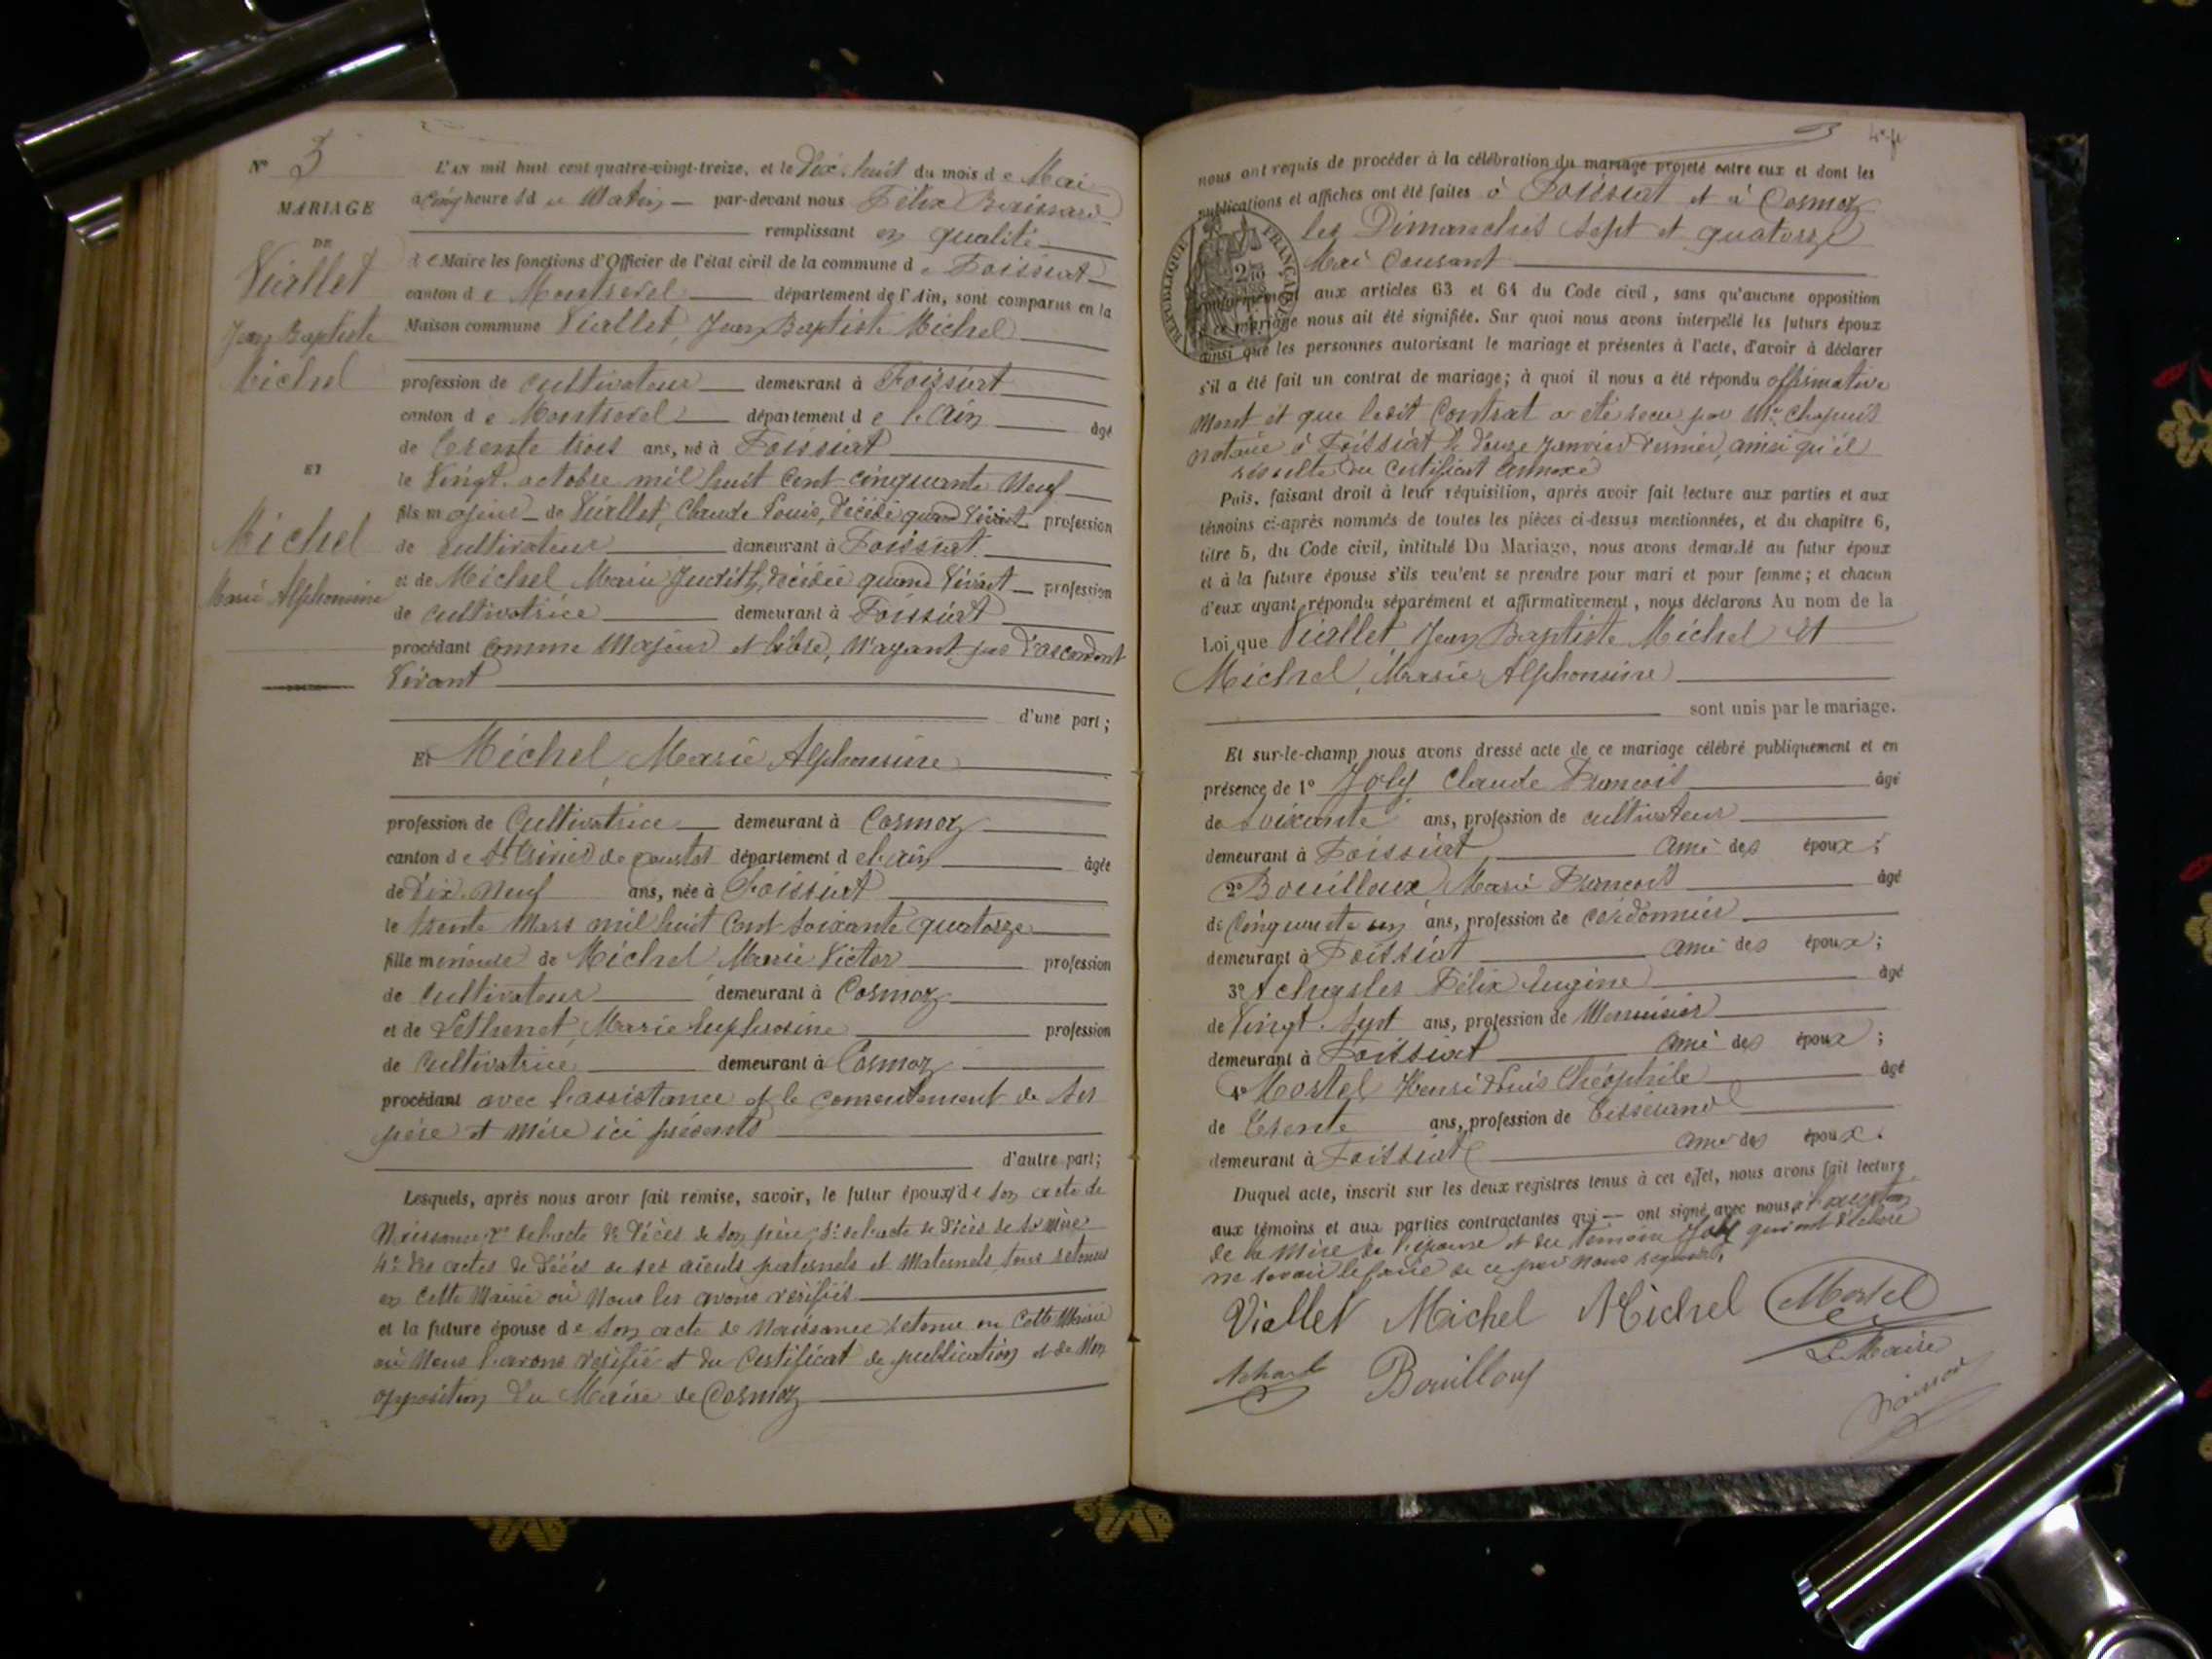 N° 3
MARIAGE
DE
Viallet
Jean Baptiste
Michel
ET
Michel
Marie Alphonsine
L'AN mil huit cent quatre-vingt-treize, et le dix huit du mois de Mai
à cinq heures du Matin — par-devant nous Félix
remplissant en qualité
de Maire les fonctions d'Officier de l'état civil de la commune de Foissiat
canton de Montrevel département de l'Ain, sont comparus en la
Maison commune Viallet, Jean Baptiste Michel
profession de cultivateur demeurant à Foissiat
canton de Montrevel département de l'Ain âgé
de trente trois ans, né à Foissiat
le Vingt octobre mil huit cent cinquante Neuf
fils majeur de Viallet, Claude Louis, décédé quand vivait profession
de cultivateur demeurant à Foissiat
et de Michel Marie Judith, décédée quand vivait profession
de cultivatrice demeurant à Foissiat
procédant comme Majeur et libre, n'ayant pas d'ascendant
Vivant
d'une part;
Et Michel, Marie Alphonsine
profession de Cultivatrice demeurant à Cormoz
canton de St Trivier de Courtes département de l'ain âgée
de dix Neuf ans, née à Foissiat
le trente Mars mil huit Cent soixante quatorze
fille mineure de Michel, Marie Victor profession
de Cultivateur demeurant à Cormoz
et de Pethenet, Marie Euphrosine profession
de Cultivatrice demeurant à Cormoz
procédant avec l'assistance et le consentement de ses
père et Mère ici présents
d'autre part;
Lesquels, après nous avoir fait remise, savoir, le futur époux 1° de son acte de
Naissance 2° de l'acte de décès de son père, 3° de l'acte de décès de sa Mère
4° des actes de décès de ses aïeuls paternels et Maternels, tous retenus
en cette Mairie où Nous les avons vérifiés
et la future épouse de son acte de Naissance retenu en Cette Mairie
où Nous l'avons vérifié et du Certificat de publication et de Non
opposition du Maire de Cormoz
3
nous ont requis de procéder à la célébration du mariage projeté entre eux et dont les
publications et affiches ont été faites à Foissiat et à Cormoz
les Dimanches sept et quatorze
Mai Courant
RÉPUBLIQUE FRANÇAISE
conformément aux articles 63 et 64 du Code civil, sans qu'aucune opposition
à ce mariage nous ait été signifiée. Sur quoi nous avons interpellé les futurs époux
ainsi que les personnes autorisant le mariage et présentes à l'acte, d'avoir à déclarer
s'il a été fait un contrat de mariage; à quoi il nous a été répondu affirmative
Ment et que ledit Contrat a été recu par Me Chapuis
notaire à Foissiat le douze Janvier dernier, ainsi qu'il
résulte du Certificat annexé
Puis, faisant droit à leur réquisition, après avoir fait lecture aux parties et aux
témoins ci-après nommés de toutes les pièces ci-dessus mentionnées, et du chapitre 6,
titre 5, du Code civil, intitulé Du Mariage, nous avons demandé au futur époux
et à la future épouse s'ils veulent se prendre pour mari et pour femme; et chacun
d'eux ayant répondu séparément et affirmativement, nous déclarons Au nom de la
Loi que Viallet, Jean Baptiste Michel Et
Michel, Marie Alphonsine
sont unis par le mariage.
Et sur-le-champ nous avons dressé acte de ce mariage célébré publiquement et en
présence de 1° Joly Claude François âgé
de soixante ans, profession de cultivateur
demeurant à Foissiat ami des époux;
2° Bouilloux Marie François âgé
de Cinquante un ans, profession de cordonnier
demeurant à Foissiat ami des époux;
3° Félix Eugène âgé
de Vingt sept ans, profession de Menuisier
demeurant à Foissiat ami des époux;
4° Mortel Henri Louis Théophile âgé
de trente ans, profession de tisserand
demeurant à Foissiat ami des époux.
Duquel acte, inscrit sur les deux registres tenus à cet effet, nous avons fait lecture
aux témoins et aux parties contractantes qui — ont signé avec nous, à l'exception
de la Mère de l'épouse et du témoin Joly qui ont déclaré
ne savoir le faire de ce par Nous requis
Viallet Michel Michel Mortel
Bouilloux
Le Maire